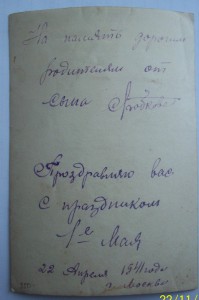 На память дорогим
родителям от
сына
Проздравляю вас
с праздником
1е Мая
22 Апреля 1941 года
г. Москва
22/11/